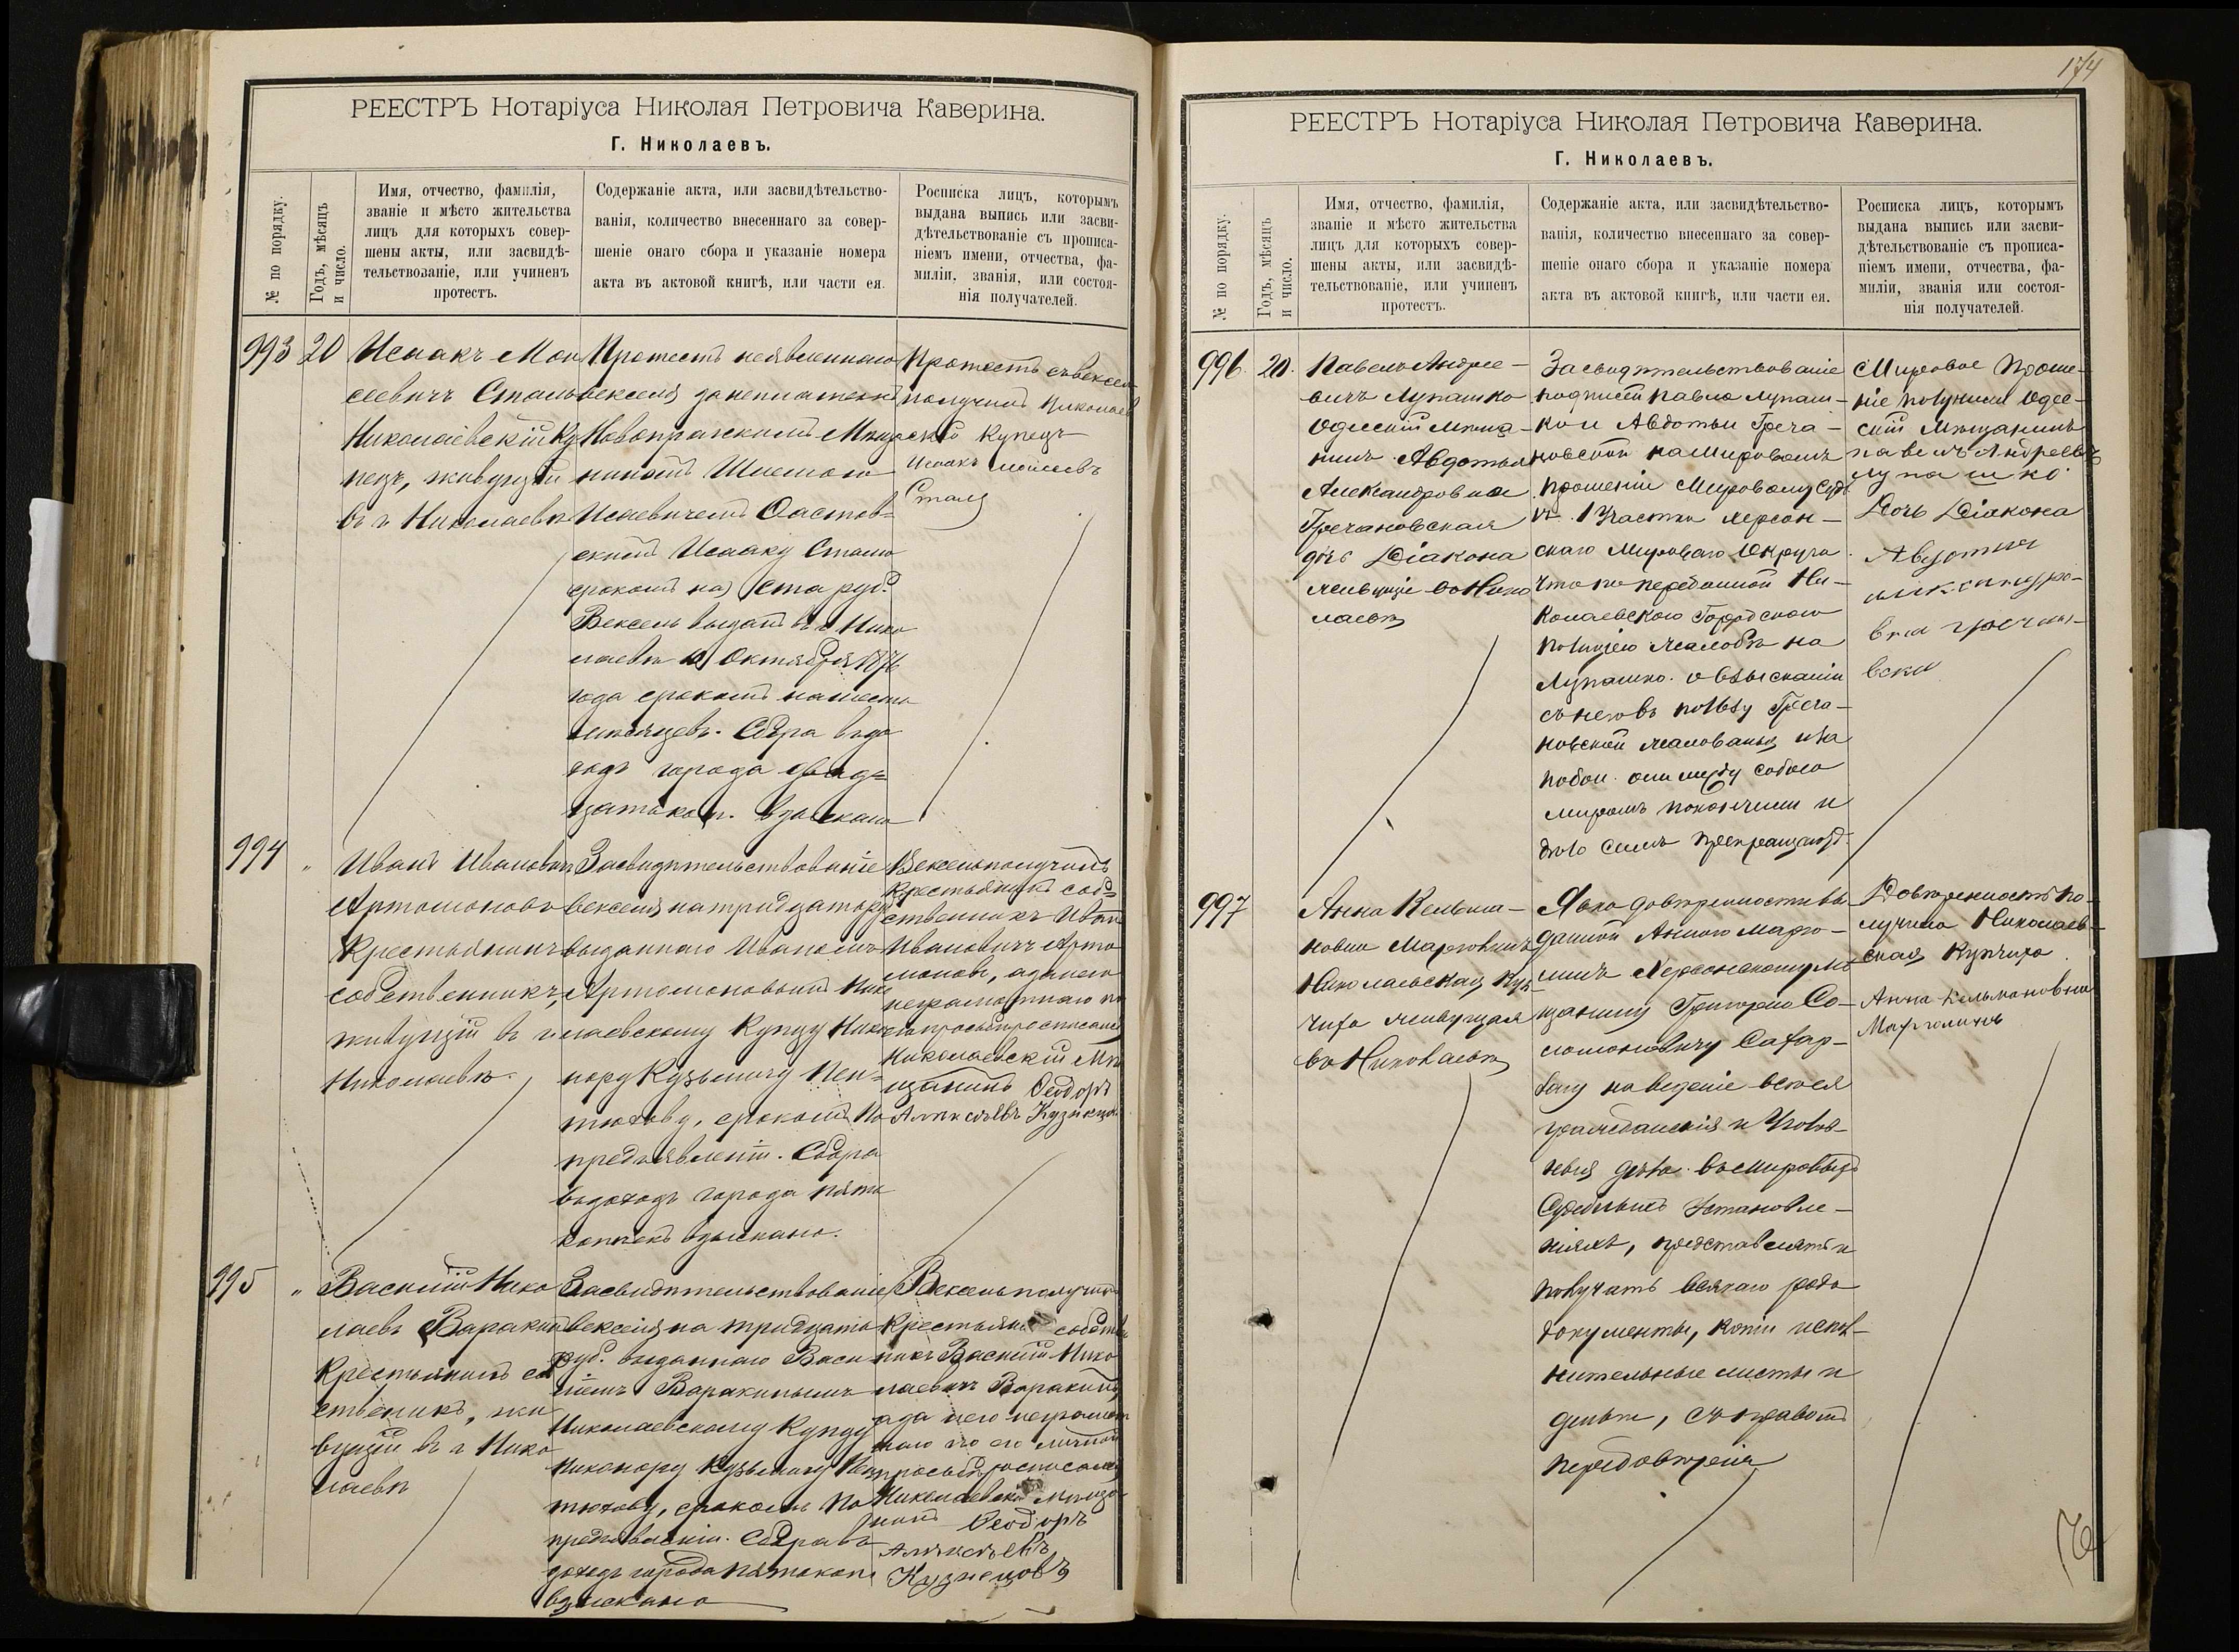 РЕЕСТРЪ Нотаріуса Николая Петровича Каверина.
Г. Николаевъ.
№ по порядку.
Годъ, мѣсяцъ
и число.
Имя, отчество, фамилія,
званіе и мѣсто жительства
лицъ для которыхъ совер-
шены акты, или засвидѣ-
тельствованіе, или учиненъ
протестъ.
Содержаніе акта, или засвидѣтельство-
ванія, количество внесеннаго за совер-
шеніе онаго сбора и указаніе номера
акта въ актовой книгѣ, или части ея.
Росписка лицъ, которымъ
выдана выпись или засви-
дѣтельствованіе съ прописа-
ніемъ имени, отчества, фа-
миліи, званія, или состоя-
нія получателей.
993
20
Исаакъ Мои
сеевичъ Сталь
Николаевскій Ку
пецъ, живущій
въ г. Николаевѣ
Протестъ неявленнаго
векселя
Исаевичемъ
Исааку Сталю
срокомъ на ста руб.
Вексель выданъ въ г. Нико
лаевѣ 10 Октября 1876
года срокомъ на шесть
мѣсяцевъ. Сбора въ до
ходъ города двад=
цать коп. взыскано
Протестъ съ векселемъ
получилъ Николаев
скій Купецъ
Исаакъ Моисеевъ
Сталь
994
"
Иванъ Ивановичъ
Артомоновъ
Крестьянинъ
собственникъ,
живущій въ г.
Николаевѣ.
Засвидѣтельствованіе
векселя на тридцать руб.
выданнаго Иваномъ
Артомоновымъ Нико
лаевскому Купцу Ника
нору Кузьмичу Пен=
тюхову, срокомъ по
предъявленіи. Сбора
въ доходъ города пять
копѣекъ взыскано.
Вексель получилъ
Крестьянинъ соб=
ственникъ Иванъ
Ивановичъ Арто
моновъ, а за него
неграмотнаго по
его просьбѣ росписался
Николаевскій Мѣ
щанинъ Ѳеодоръ
Алексѣевъ Кузнецовъ
995
"
Василій Нико
лаевъ Варакинъ
Крестьянинъ соб
ственикъ, жи
вущій въ г. Нико
лаевѣ
Засвидѣтельствованіе
векселя на тридцать
руб. выданнаго Васи
ліемъ Варакинымъ
Николаевскому Купцу
Никанору Кузьмичу Пен
тюхову, срокомъ по
предъявленіи. Сбора въ
доходъ города пять коп.
взыскано
Вексель получилъ
Крестьянинъ собствен
никъ Василій Нико
лаевичъ Варакинъ,
а за него неграмот
наго по его личной
просьбѣ росписался
Николаевскій Мѣща
нинъ Ѳеодоръ
Алексѣевъ
Кузнецовъ
174
РЕЕСТРЪ Нотаріуса Николая Петровича Каверина.
Г. Николаевъ.
№ по порядку.
Годъ, мѣсяцъ
и число.
Имя, отчество, фамилія,
званіе и мѣсто жительства
лицъ для которыхъ совер-
шены акты, или засвидѣ-
тельствованіе, или учиненъ
протестъ.
Содержаніе акта, или засвидѣтельство-
ванія, количество внесеннаго за совер-
шеніе онаго сбора и указаніе номера
акта въ актовой книгѣ, или части ея.
Росписка лицъ, которымъ
выдана выпись или засви-
дѣтельствованіе съ прописа-
ніемъ имени, отчества, фа-
миліи, званія или состоя-
нія получателей.
996
20.
Павелъ Андрее-
вичъ Лупашко
Одесскій Мѣща-
нинъ Авдотья
Александровна
Гречановская
дочь Діакона
живущіе въ Нико
лаевѣ
Засвидѣтельствованіе
подписей Павла Лупаш-
ко и Авдотьи Греча-
новской на мировомъ
прошеніи Мировому Судьѣ
1 Участка Херсон-
скаго Мироваго Округа
что по переданной Ни-
колаевскою Городскою
полиціею жалобѣ на
Лупашко о взысканіи
съ него въ пользу Греча-
новской жалованья и за
побои они между собою
миромъ покончили и
дѣло симъ прекращаютъ.
Мировое Проше-
ніе получили Одес-
скій Мѣщанинъ
Павелъ Андреевъ
Лупашко
Дочь Діакона
Авдотия
997
Анна Кельма-
новна Марголинъ
Николаевская Куп-
чиха живущая
въ Николаевѣ
Явка довѣренности вы-
данной Анною Марго-
линъ Херсонскому Мѣ
щанину Григорію Со-
ломоновичу Сахар-
ову на веденіе всѣ ея
гражданскія и уголов-
ныя дѣла въ мировыхъ
Судебныхъ Установле-
ніяхъ, представлять и
получать всякаго рода
документы, копіи испол-
нительные листы и
деньги, съ правомъ
передовѣрія
Довѣренность по-
лучила Николаев-
ская Купчиха
Анна Кельмановна
Марголинъ